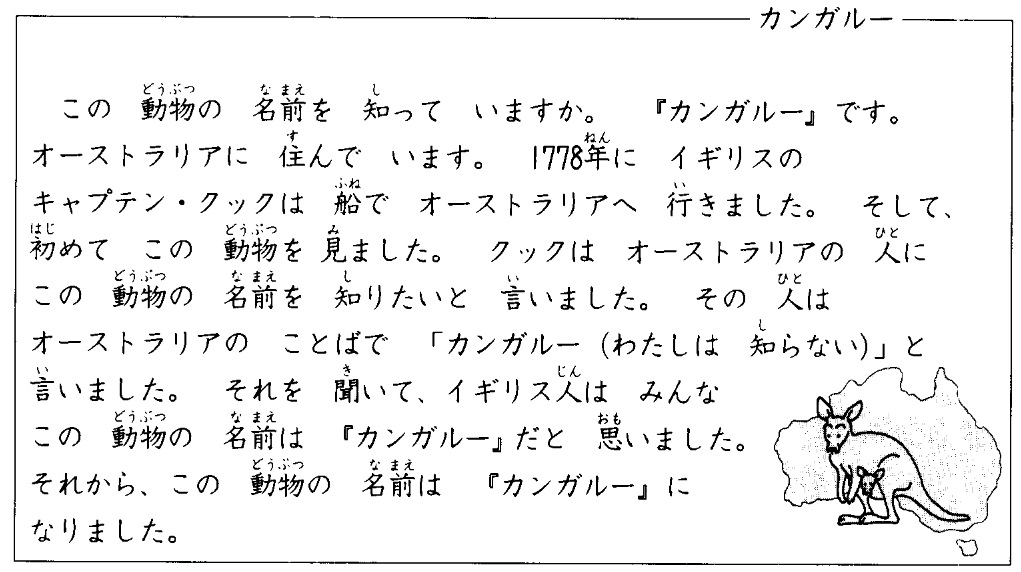 カンガルー
この 動物の 名前を 知って いますか。 『カンガルー』です。
オーストラリアに 住んで います。 1778年に イギリスの
キャプテン・クックは 船で オーストラリアへ 行きました。 そして、
初めて この 動物を 見ました。 クックは オーストラリアの 人に
この 動物の 名前を 知りたいと 言いました。 その 人は
オーストラリアの ことばで 「カンガルー (わたしは 知らない)」と
言いました。 それを 聞いて、イギリス人は みんな
この 動物の 名前は 『カンガルー』だと 思いました。
それから、この 動物の 名前は 『カンガルー』に
なりました。